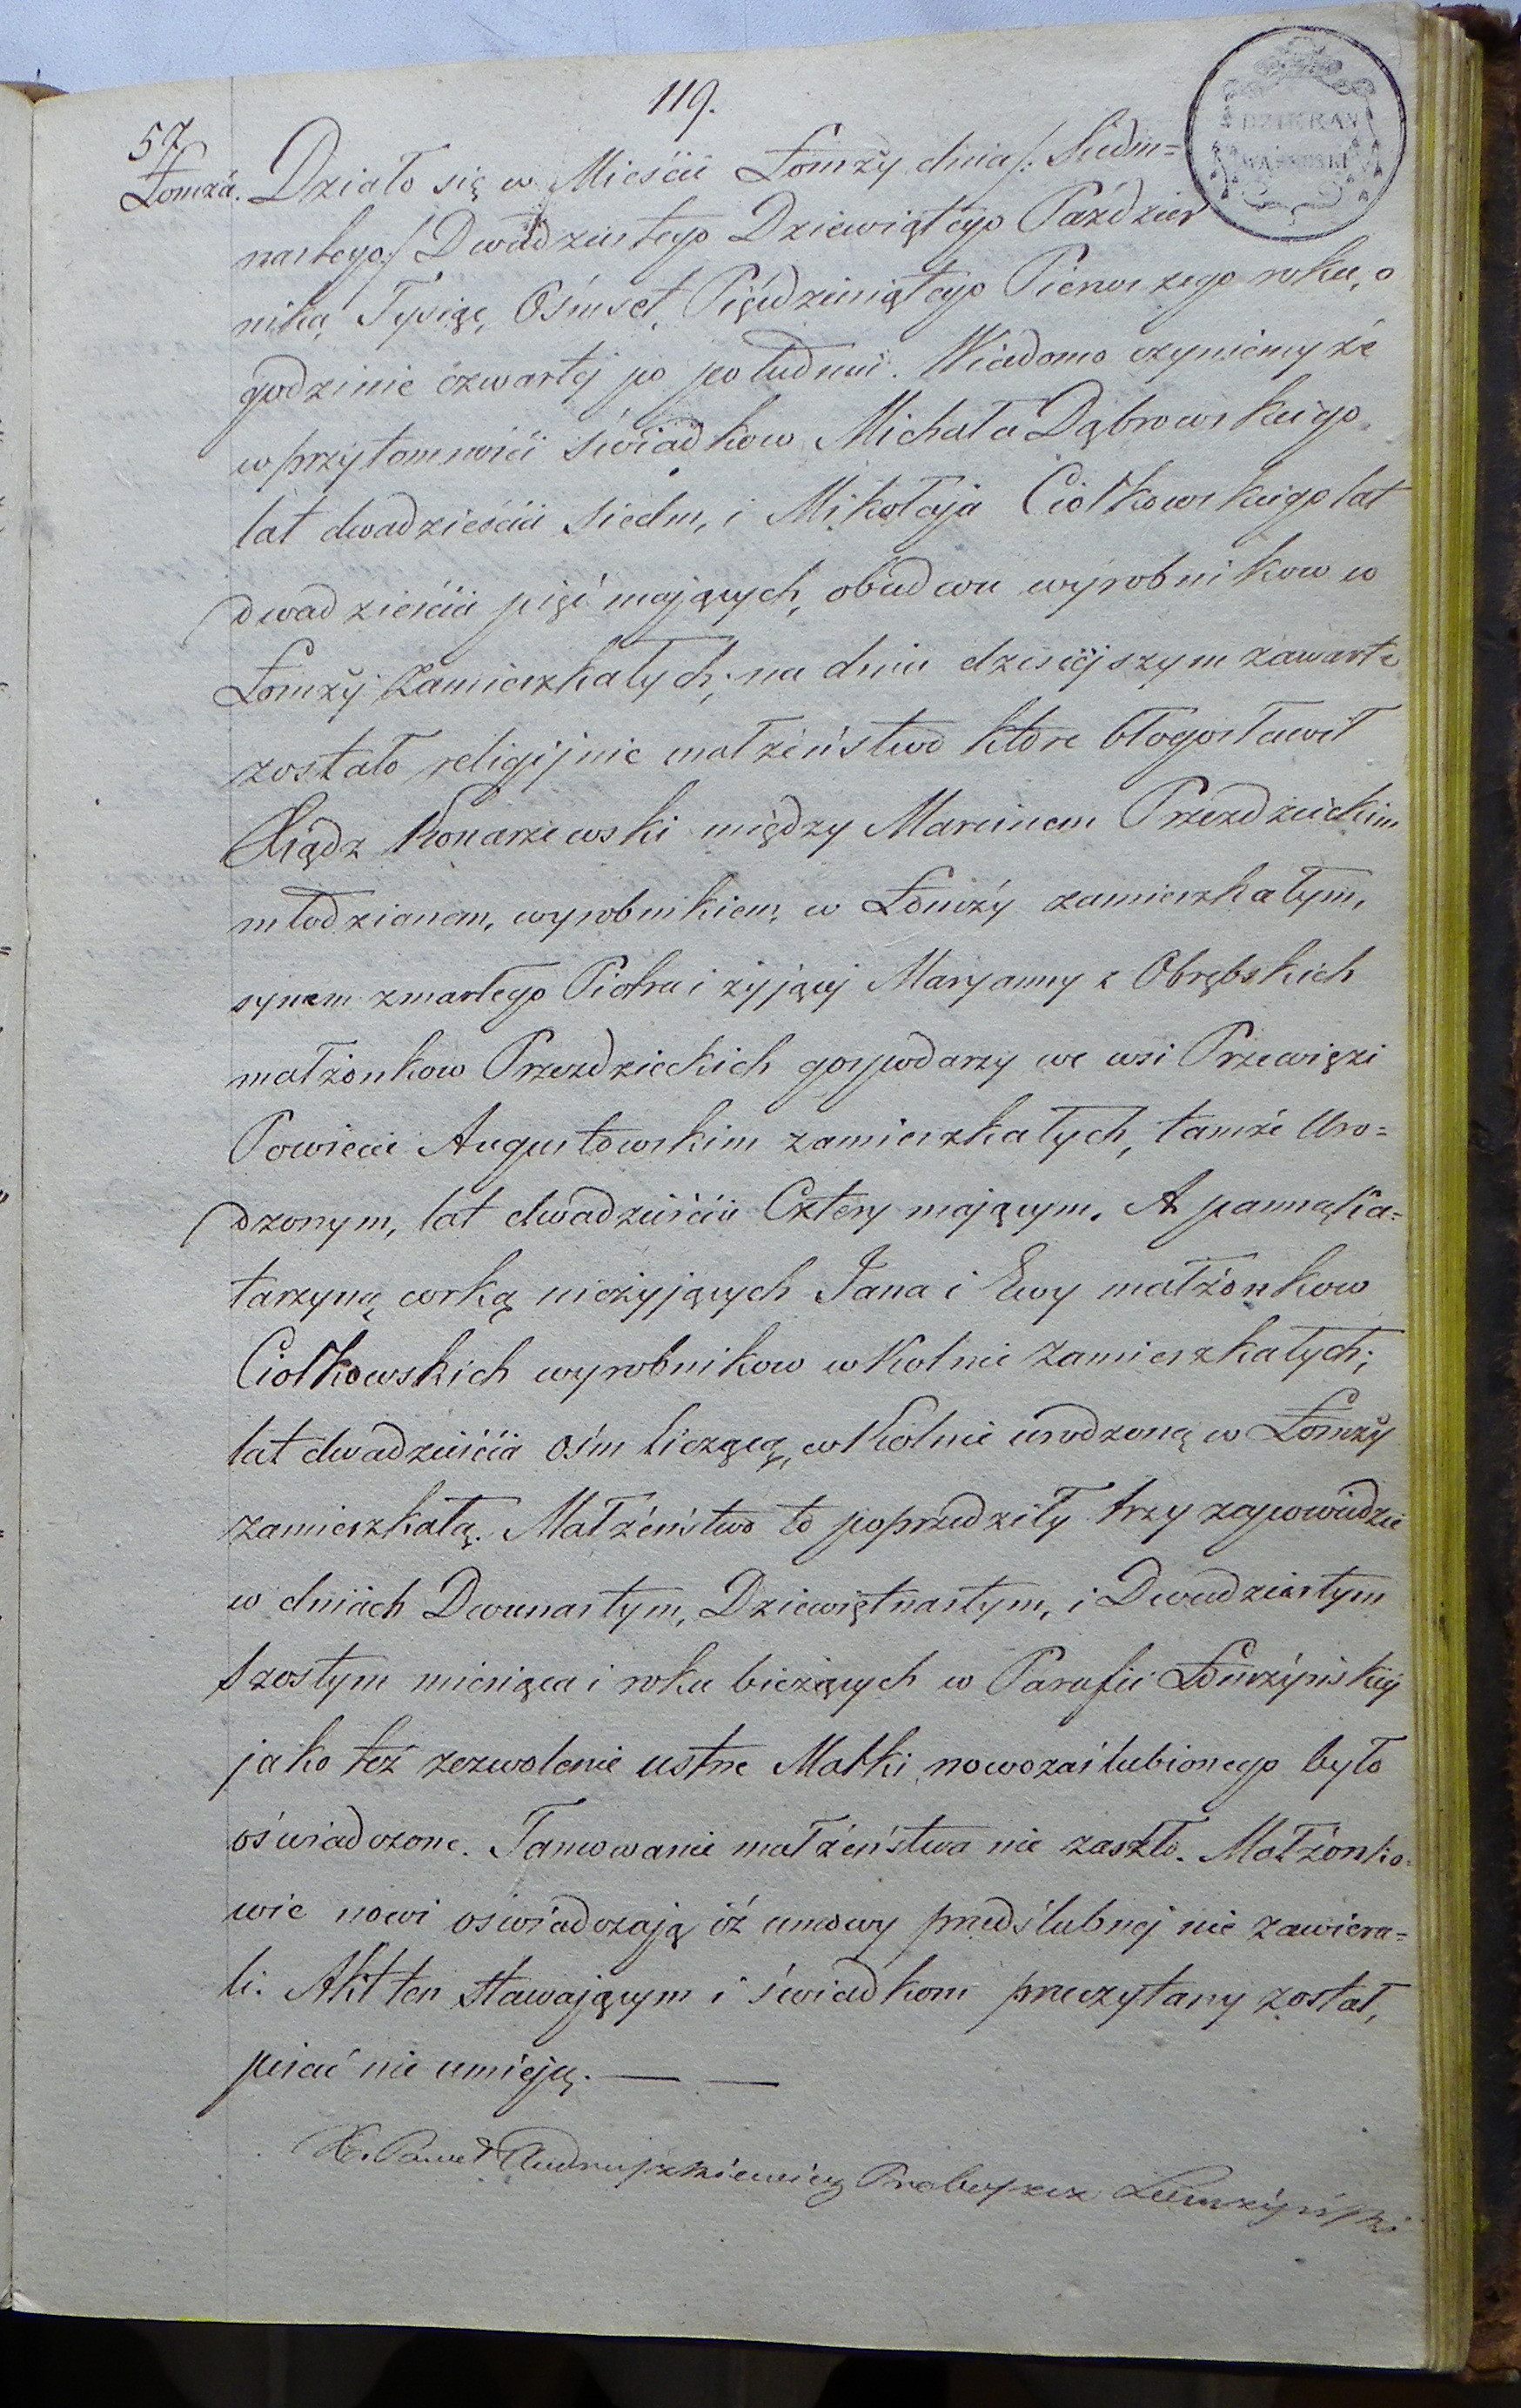 119.
57
Łomża.
DZIEKAN
Działo się w Mieście Łomży dnia /: Siedm=
nastego :/ Dwudziestego Dziewiątego Paździer
nika, Tysiąc, Ośmset, Pięćdziesiątego Pierwszego roku, o
godzinie czwartej po południu. Wiadomo czyniemy że
w przytomności świadkow Michała Dąbrowskiego
lat dwadzieścia siedm, i Mikołaja Ciołkowskiego lat
dwadzieścia pięć mających, obudwu wyrobnikow w
Łomży Zamieszkałych; na dniu dzisiejszym zawarte
zostało religijnie małżeństwo które błogosławił
Xiądz Konarzewski między Marcinem Przezdzieckim
młodzianem, wyrobnikiem w Łomży zamieszkałym,
synem zmarłego Piotra i żyjącej Maryanny z Obrębskich
małżonkow Przezdzieckich gospodarzy we wsi Przewięzi
Powiecie Augustowskim zamieszkałych, tamże Uro=
dzonym, lat dwadzieścia Cztery mającym. A panną Ka=
tarzyną corką nieżyjących Jana i Ewy małżonkow
Ciołkowskich wyrobnikow w Kolnie zamieszkałych;
lat dwadzieścia ośm liczącą, w Kolnie urodzoną w Łomży
zamieszkałą. Małżeństwo to poprzedziły trzy zapowiedzie
w dniach Dwunastym, Dziewiętnastym, i Dwudziestym
szostym miesiąca i roku bieżących w Parafii Łomżyńskiej
jako też zezwolenie ustne Matki nowozaślubionego było
oświadczone. Tamowanie małżeństwa nie zaszło. Małżonko=
wie nowi oświadczają iż umowy przedślubnej nie zawiera=
li. Akt ten stawającym i świadkom przeczytany został,
pisać nie umieją. — —
X. Paweł Andruszkiewicz Proboszcz Łomżyński